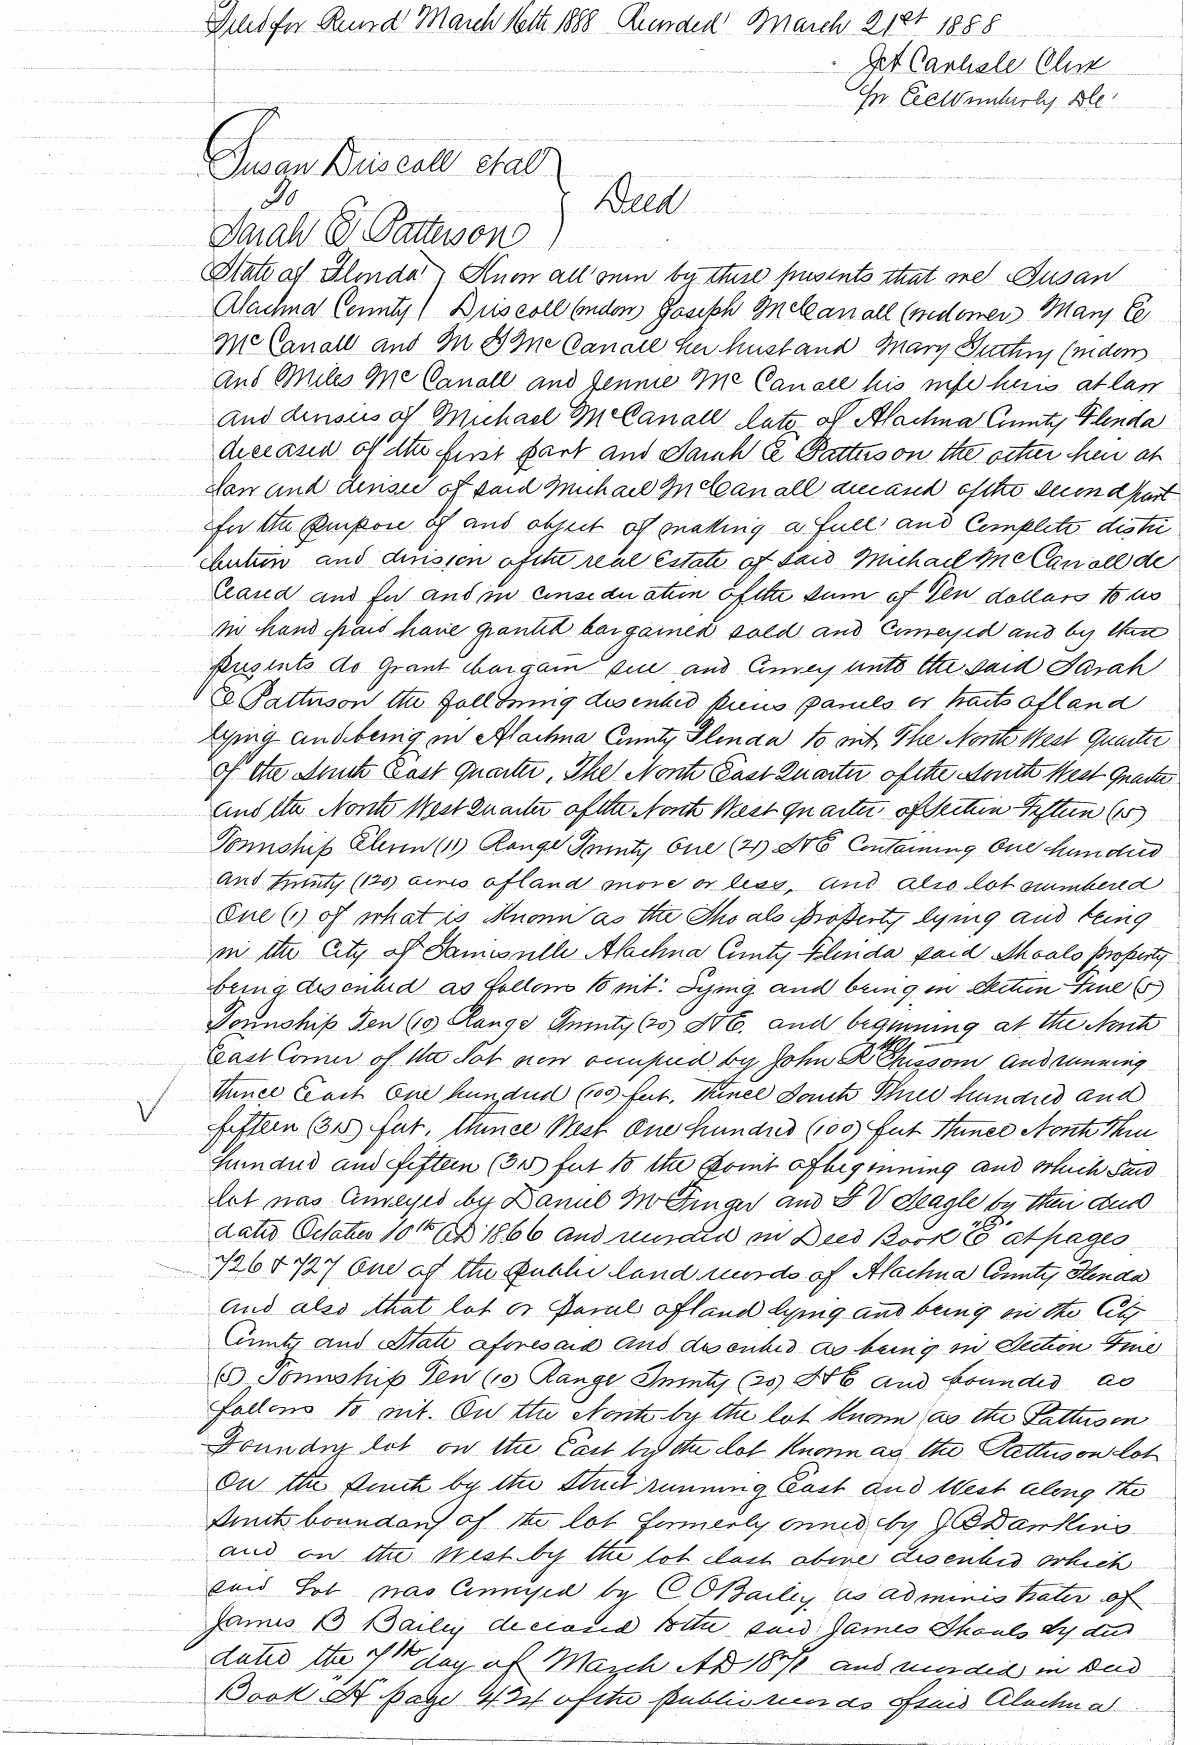 Filed for Record March 16th 1888 Recorded March 21st 1888
J A Carlisle Clerk
pr E C Wimberly D C
Susan Driscoll et al
To
Deed
Sarah E Patterson
State of Florida Know all men by these presents that we Susan
Alachua County Driscoll (widow) Joseph McCanall (widower) Mary E
McCanall and M McCanall her husband Mary Guthry (widow)
and Miles McCanall and Jennie McCanall his wife heirs at law
and devisees of Michael McCanall late of Alachua County Florida
deceased of the first part and Sarah E Patterson the other heir at
law and devisee of said Michael McCanall deceased of the second part
for the purpose of and object of making a full and complete distri
bution and division of the real Estate of said Michael McCanall de
ceased and for and in consideration of the sum of Ten dollars to us
in hand paid have granted bargained sold and conveyed and by these
presents do grant bargain sell and convey unto the said Sarah
E Patterson the following described pieces parcels or tracts of land
lying and being in Alachua County Florida to wit, The North West Quarter
of the South East Quarter, The North East Quarter of the South West Quarter
and the North West Quarter of the North West Quarter of Section Fifteen (15)
Township Eleven (11) Range Twenty One (21) S & E Containing One hundred
and twenty (120) acres of land more or less, and also lot numbered
One (1) of what is Known as the Shoals property lying and being
in the City of Gainesville Alachua County Florida said Shoals property
being described as follows to wit: Lying and being in Section Five (5)
Township Ten (10) Range Twenty (20) S & E. and beginning at the North
East Corner of the lot now occupied by John R Chissom and running
thence East One hundred (100) feet, thence South Three hundred and
fifteen (315) feet, thence West One hundred (100) feet thence North three
hundred and fifteen (315) feet to the point of beginning and which said
lot was conveyed by Daniel McGinger and F V Seagle by their deed
dated October 10th AD 1866 and recorded in Deed Book "E" at pages
726 & 727 One of the public land records of Alachua County Florida
and also that lot or parcel of land lying and being in the City
County and State aforesaid and described as being in Section Five
(5) Township Ten (10) Range Twenty (20) S & E and bounded as
follows to wit. On the North by the lot Known as the Patterson
Foundry lot on the East by the lot Known as the Patterson lot
On the South by the street running East and West along the
South boundary of the lot formerly owned by J B Dawkins
and on the West by the lot last above described which
said Lot was conveyed by C O Bailey as administrator of
James B Bailey deceased to the said James Shoals by deed
dated the 7th day of March AD 1871 and recorded in Deed
Book "H" page 424 of the public records of said Alachua